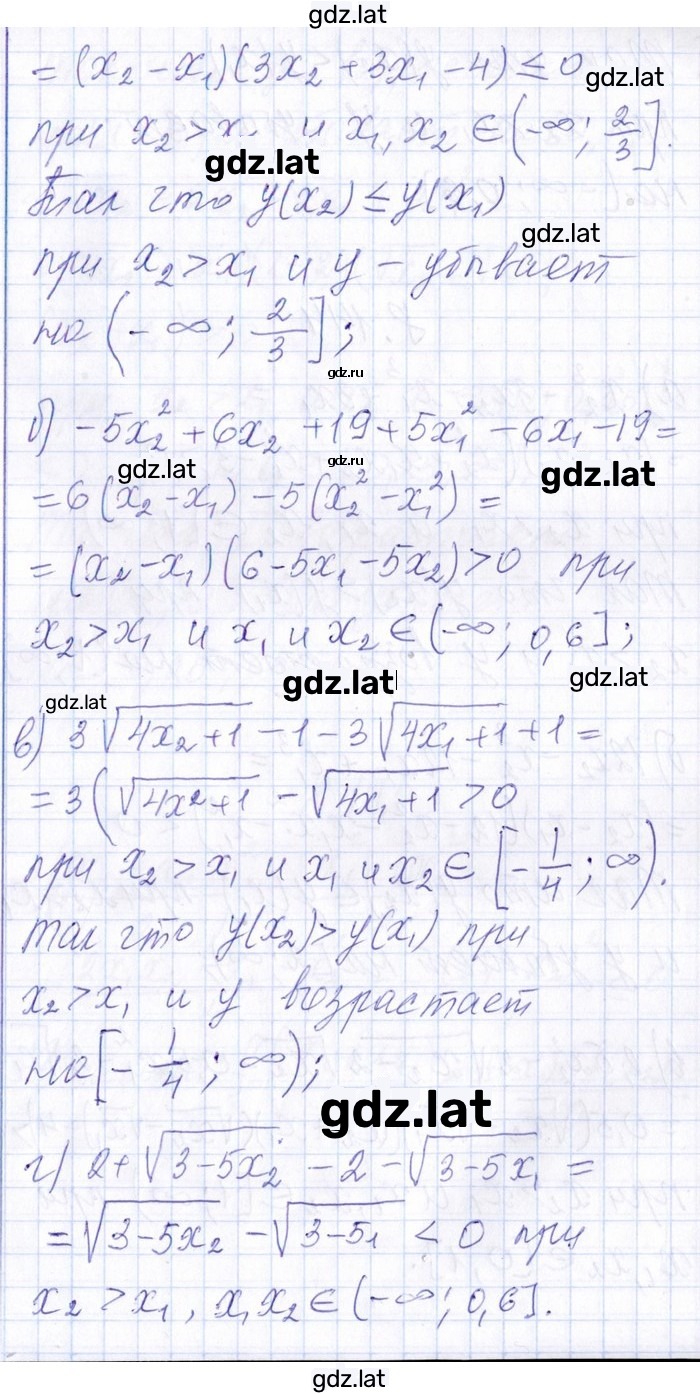 gdz.lat
= (x₂ - x₁)(3x₂ + 3x₁ - 4) ≤ 0
gdz.lat
при x₂ > x. и x₁, x₂ ∈ (-∞; 2/3].
gdz.lat
Так что y(x₂) ≤ y(x₁)
gdz.lat
при x₂ > x₁ и y - убывает
на (-∞; 2/3];
gdz.ru
б) -5x₂² + 6x₂ + 19 + 5x₁² - 6x₁ - 19 =
gdz.lat gdz.ru gdz.lat
= 6(x₂ - x₁) - 5(x₂² - x₁²) =
= (x₂ - x₁)(6 - 5x₁ - 5x₂) > 0 при
x₂ > x₁ и x₁ и x₂ ∈ (-∞; 0,6];
gdz.lat gdz.lat gdz.lat
в) 3√(4x₂+1) - 1 - 3√(4x₁+1) + 1 =
= 3(√(4x²+1) - √(4x₁+1) > 0
при x₂ > x₁ и x₁ и x₂ ∈ [-1/4; ∞).
так что y(x₂) > y(x₁) при
x₂ > x₁ и y возрастает
на [-1/4; ∞);
gdz.lat
г) 2 + √(3-5x₂) - 2 - √(3-5x₁) =
= √(3-5x₂) - √(3-5₁) < 0 при
x₂ > x₁, x₁ x₂ ∈ (-∞; 0,6].
gdz.lat